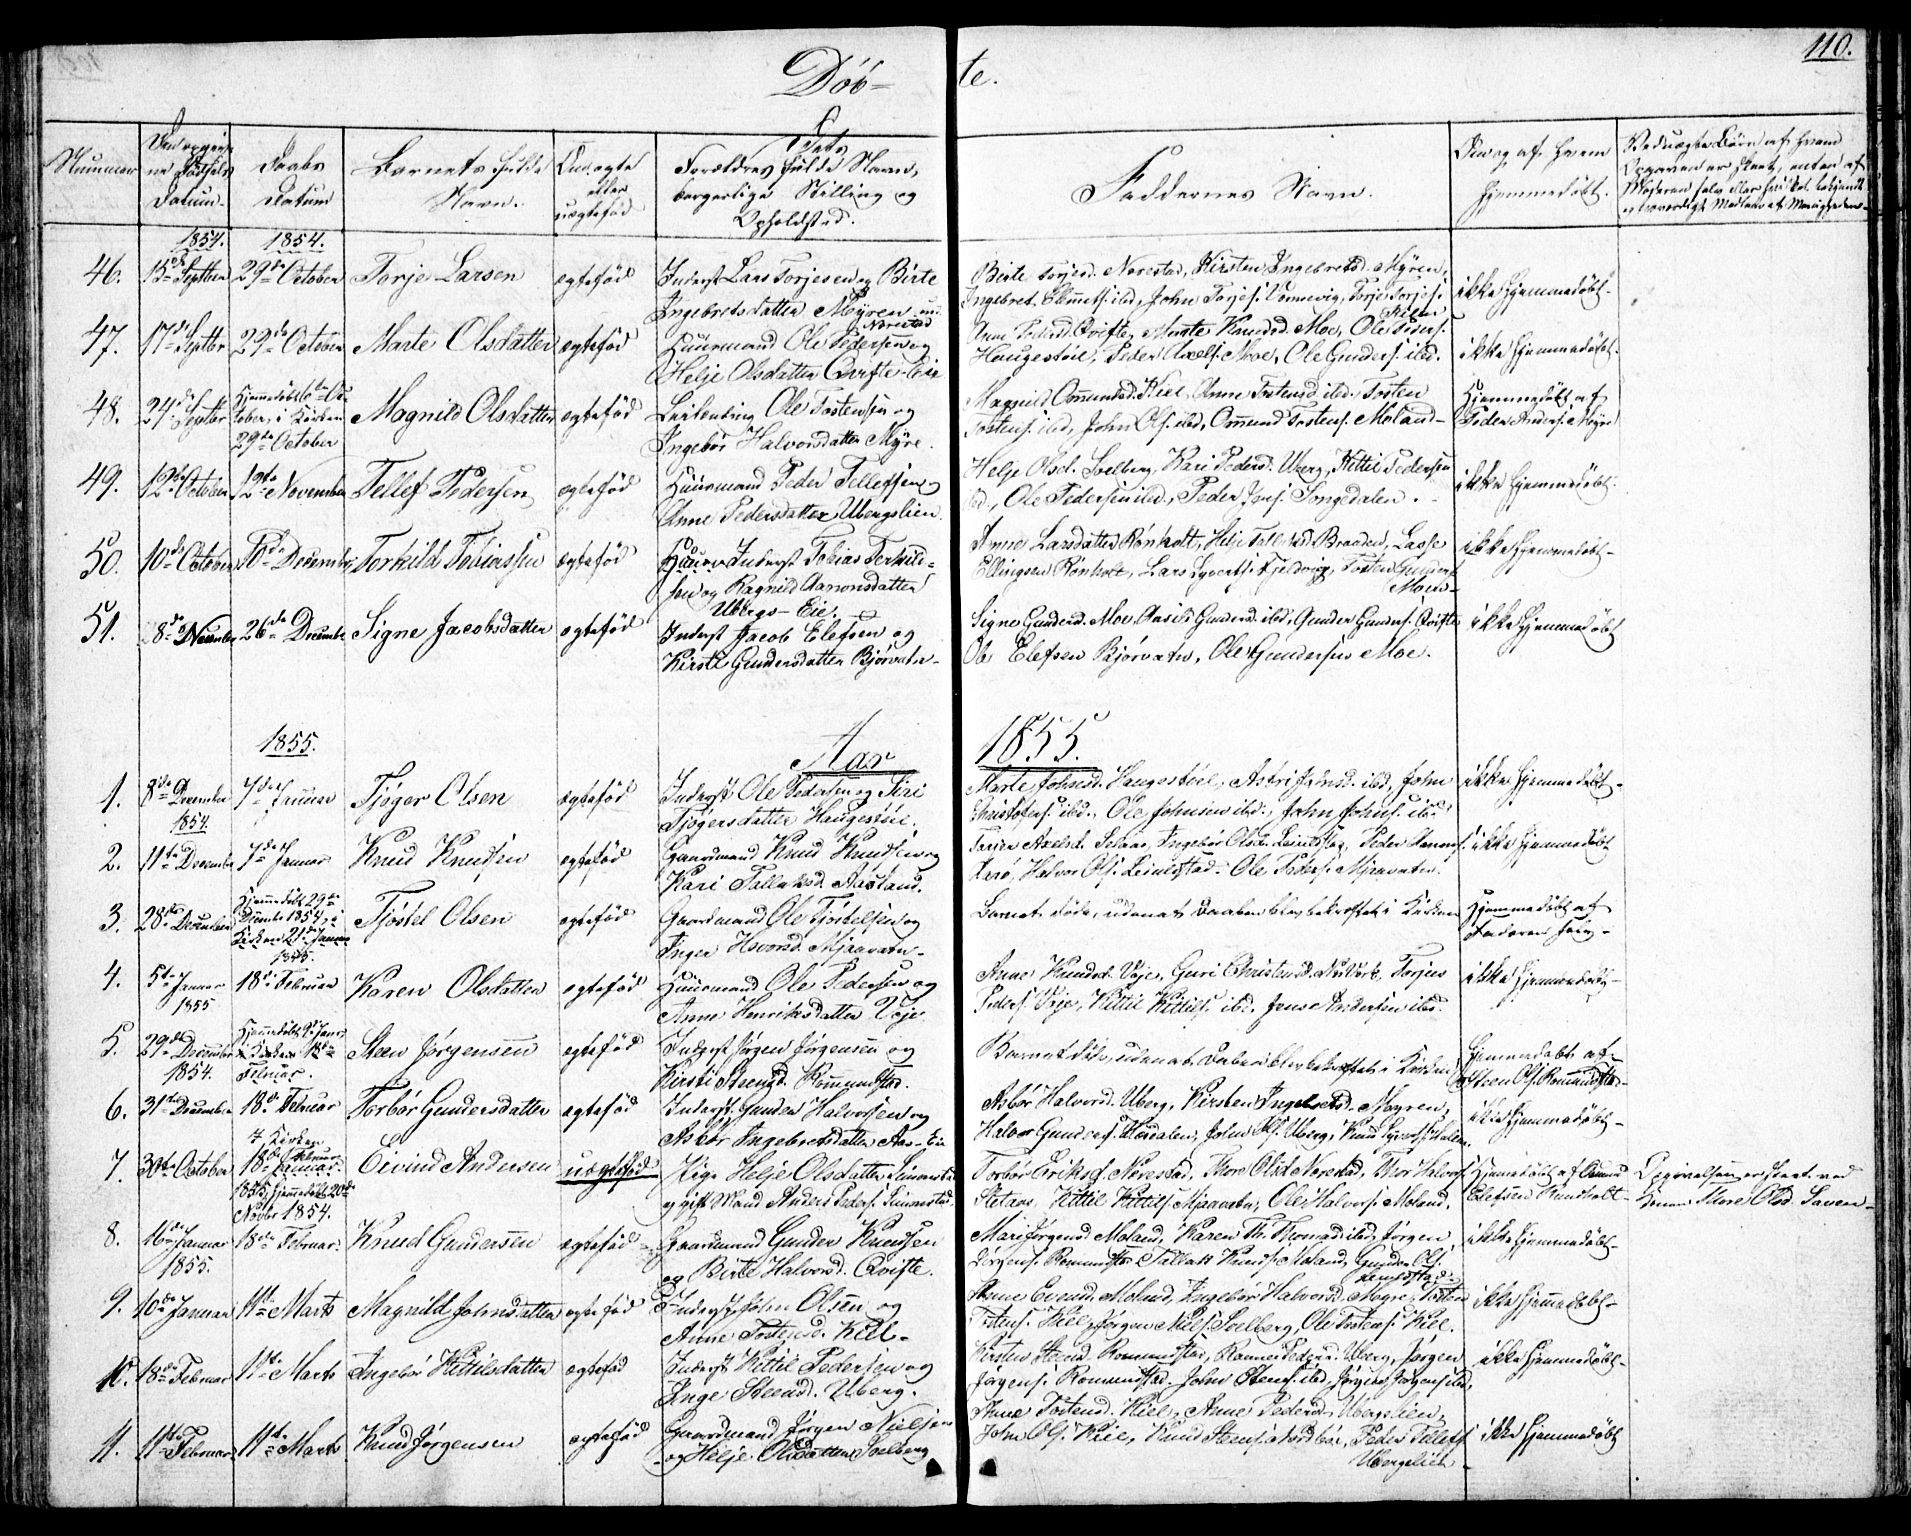 110.
Døb-
te.
Nummer
Datum
Daabs
Datum
Barnets fulde
Navn.
egte
eller
uegtefød
Forældres fulde Navn,
borgerlige Stilling og
Opholdssted.
Faddernes Navn.
af hvem
hjemmedøbt.
1854. 1854.
46. 13de Septbr 29de October Torje Larsen egtefød Inderst Lars Torjesen og Birte
Ingebretsdatter Myren
Nærestad
Birte Torjesd. Nærestad, Kirsten Ingebretsd. Myren,
Ingebret ibd, John Torjes. Torje Torjes.
ikke hjemmedøbt.
47. 17de Septbr 29de October Marte Olsdatter egtefød Huusmand Ole Pedersen og
Helje Olsdatter Qvifte-Eie
Anne Pedersd. Qvifte, Marte Knudsd. Moe, Ole Peders.
Haugestøie, Peder Axels. Moe, Ole Gunders. ibd.
ikke hjemmedøbt.
48. 24de Septbr Hjemmedøbt
tober, i Kirken
29de October
Magnild Olsdatter egtefød Ole Tostensen og
Ingebør Halvorsdatter Myre.
Magnild Omundsd. Kiel, Anne Tostensd. ibd, Tosten
Tostens. ibd, John Ols. ibd, Omund Tostens. Moland-
Hjemmedøbt af
Peder Anders. Myre
49. 12te October 12te November Tellef Pedersen egtefød Huusmand Peder Tellefsen og
Anne Pedersdatter Ubergslien.
Helje Olsd. Solberg, Kari Pedersd. Uberg, Kittil Pedersen
ibd, Ole Pedersen ibd, Peder Jens. Songedalen.
ikke hjemmedøbt.
50. 10de October 10de December Torkild Tobiassen egtefød Inderst Tobias Terkild-
sen og Ragnild Aanonsdatter
Ubergs-Eie.
Anne Larsdatter Rønholt, Helje Braaden, Lasse
Ellingsen Rønholt, Lars Tosten Gunders.
Moen-
ikke hjemmedøbt-
51. 8de Novembr 26de Decembr Signe Jacobsdatter egtefød Inderst Jacob Elefsen og
Kirsti Gundersdatter Bjørvatn-
Signe Gundersd. Moe, Aasil Gundersd. ibd, Gunder Gunders. Qvifte
Ole Elefsen Bjørvatn, Ole Gundersen Moe.
ikke hjemmedøbt
1855.
Aar 1855.
1. 8de December
1854.
7de Januar Tjøger Olsen egtefød Inderst Ole Pedersen og Siri
Tjøgersdatter Haugestøie.
Marte Johnsd. Haugestøiel, Astri Johnsd. ibd, John
Christofers. ibd, Ole Johnsen ibd, John Johns. ibd.
ikke hjemmedøbt-
2. 11te December 7de Januar Knud Knudsen egtefød Gaardmand Knud Knudsen og
Kari Tallaksd. Aasland.
Axelsd. Selaas, Ingebør Olsd. Peder
Halvor Ols. Ole Peders. Mjaavatn.
ikke hjemmedøbt
3. 28de December Hjemmedøbt 29de
Decembr 1854, i
Kirken 21de Januar
1855.
Tjøstel Olsen egtefød Gaardmand Ole Tjøstelsen og
Inger Mjaavatn-
Barnet døde, uden at Daaben blev bekræftet i Kirken
Hjemmedøbt af
Faderen selv-
4. 5te Januar
1855
18de Februar Karen Olsdatter egtefød Huusmand Ole Pedersen og
Anne Henriksdatter Veje
Anne Knudsd. Veje, Guri Christensd. Torjus
Peders. Veje, Kittil Kittils. ibd, Jens Andersen ibd.
ikke hjemmedøbt-
5. 29de December
1854.
Hjemmedøbt 9de Januar
i Kirken 18de
Februar.
Steen Jørgensen egtefød Inderst Jørgen Jørgensen og
Kirsti Steensd. Romundstad.
Barnet døde, uden at Daaben blev bekræftet i Kirken
Hjemmedøbt af
Steen Ols. Romundstad-
6. 31te December 18de Februar Torbør Gundersdatter egtefød Inderst Gunder Halvorsen og
Asbør Ingebretsdatter Aas-Eie
Asbør Halvorsd. Uberg, Kirsten Ingebretsd. Myren,
Halvor Gunders. John Ols. Uberg, Knud
ikke hjemmedøbt-
7. 30te October i Kirken
18de Februar
1855, Hjemmedøbt 20de
Novbr 1854.
Eivind Andersen uegtefød Pige Helje Olsdatter
og gift Mand Anders Peders.
Torbør Eriksd. Nærestad, Thore Olsd. Nærestad, Thor Halvors.
Selaas, Kittil Kittils. Mjaavatn, Ole Halvors. Moland.
Hjemmedøbt af Omund
Elefsen Rundholt-
Opgivelsen er skeet ved
Olsd. Saven-
8. 16de Januar
1855.
18de Februar Knud Gundersen egtefød- Gaardmand Gunder Knudsen
og Birte Halvorsd. Qvifte.
Mari Jørgensd. Moland, Karen Th. Thomasd. ibd, Jørgen
Jørgens. Romundstad, Tallak Knuds. Moland, Gunder Ols.
ikke hjemmedøbt-
9. 10de Januar 11te Marts Magnild Johnsdatter egtefød Inderst John Olsen og
Anne Tostensd. Kiel-
Anne Evensd. Moland, Ingebør Halvorsd. Myre, Tosten
Tostens. Kiel, Jørgen Niels. Solberg, Ole Tostens. Kiel.
ikke hjemmedøbt-
10. 18de Februar 11te Marts Ingebør Kittilsdatter egtefød Inderst Kittil Pedersen og
Inge Steensd. Uberg.
Kirsten Steensd. Romundstad, Pedersd. Uberg, Jørgen
Jørgens. Romundstad, John Steens. ibd, Jørgen Jørgens. ibd.
ikke hjemmedøbt-
11. 11te Februar 11te Marts Knud Jørgensen egtefød Gaardmand Jørgen Nielsen
og Helje Olsdatter Solberg
Anne Tostensd. Kiel, Anne Pedersd. Ubergslien,
John Ols. Kiel, Knud Steens. Nordbøe, Peder Tellefs.
Ubergslien
ikke hjemmedøbt